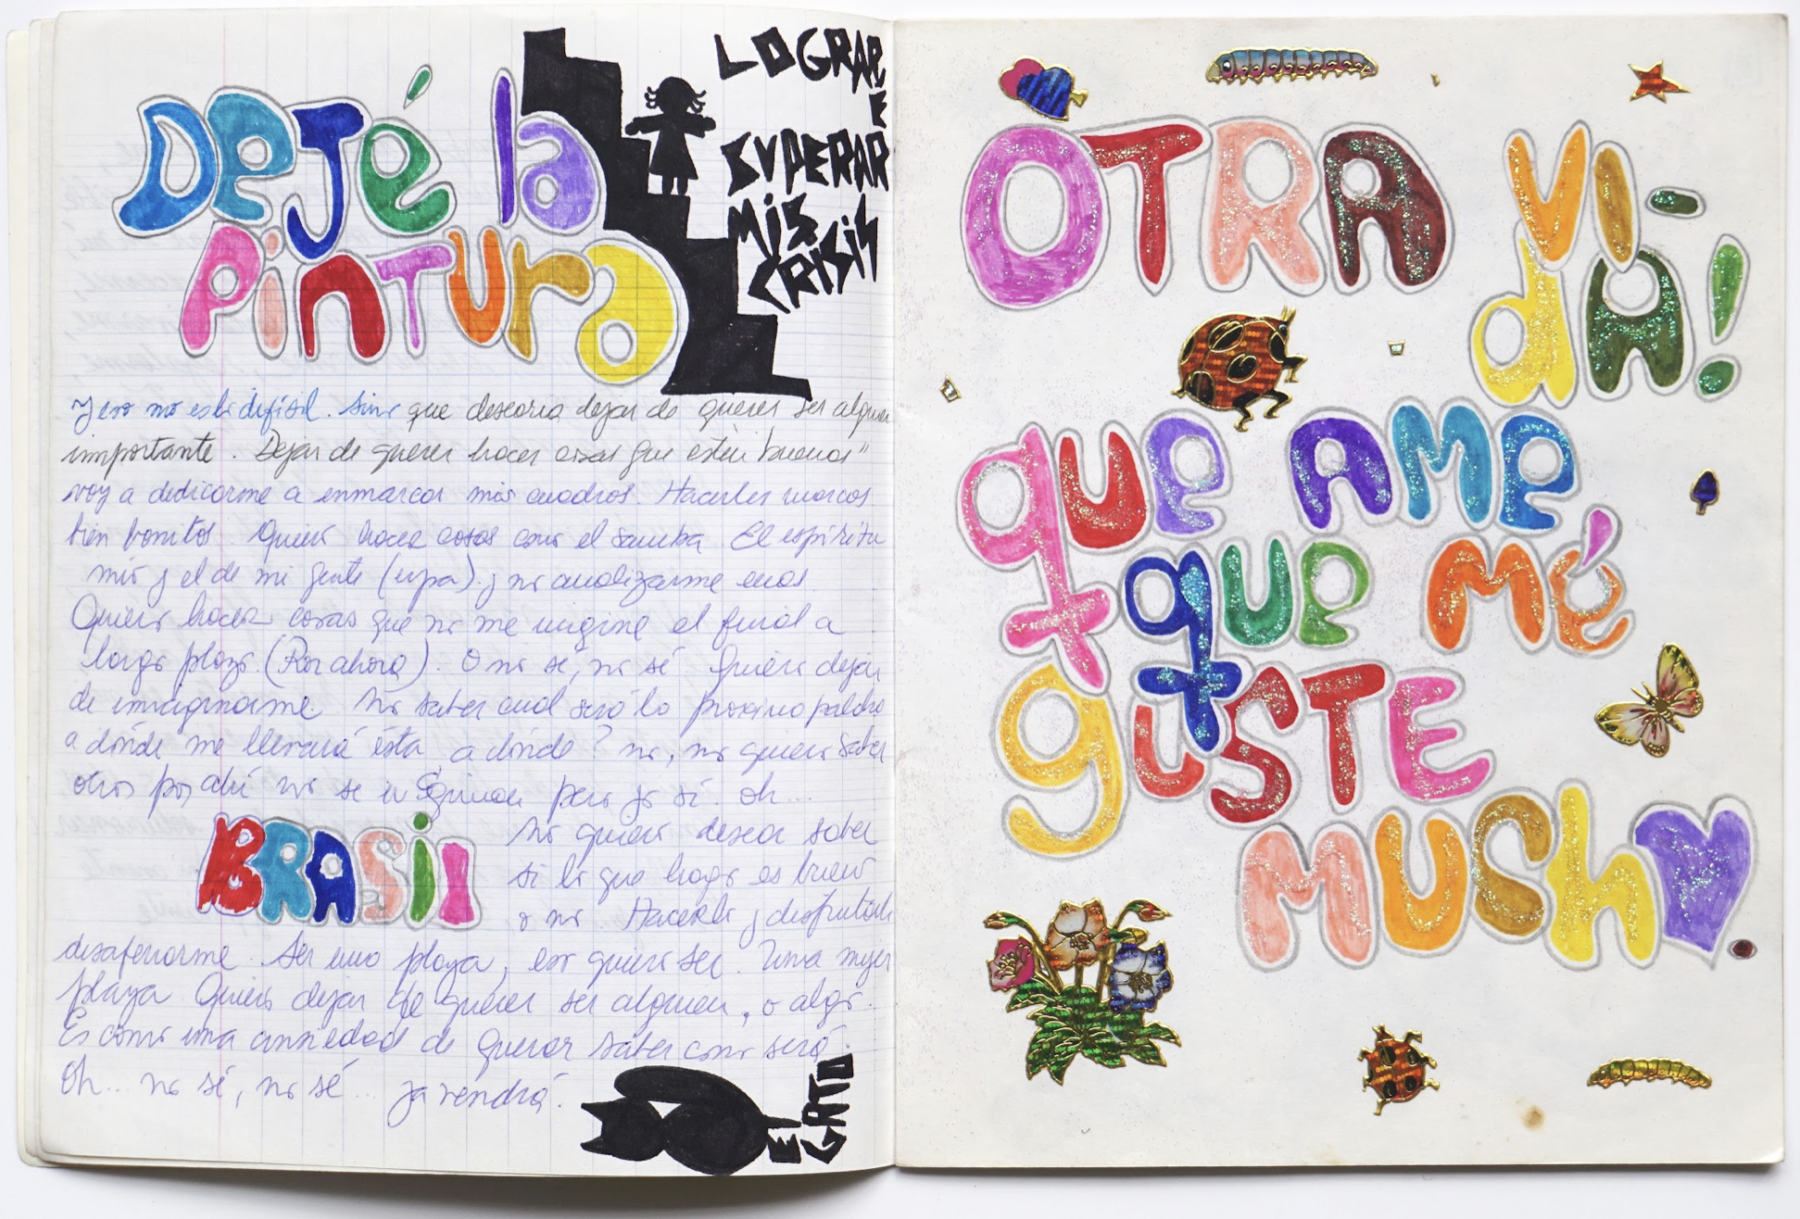 DEJÉ la
Pintura
LOGRAR
E
SUPERAR
MIS
CRISIS
Y eso no es lo difícil. Sino que desearía dejar de querer ser alguien
importante. Dejar de querer hacer cosas que estén buenas"
voy a dedicarme a enmarcar mis cuadros. Hacerles marcos
bien bonitos. Quiero hacer cosas con el samba. El espíritu
mío y el de mi gente (upa). y no analizarme
Quiero hacer cosas que no me imagine el final a
largo plazo. (Por ahora). O no sé, no sé. Quiero dejar
de imaginarme. No saber cual será lo próximo
a dónde me llevará ésta, a dónde? no, no quiero saber
otros por ahí no se pero yo sí. oh...
BRASIL
No quiero desear saber
si lo que hago es bueno
o no. Hacerlo y disfrutarlo
desaferrarme. Ser uno playa, eso quiero ser. Una mujer
playa. Quiero dejar de querer ser alguien, o algo.
Es como una ansiedad de querer saber como será.
Oh... no sé, no sé... ya vendrá.
EL
GATO
OTRA VI-
dA!
que AME
que Mé
gUSTE
MUSHO